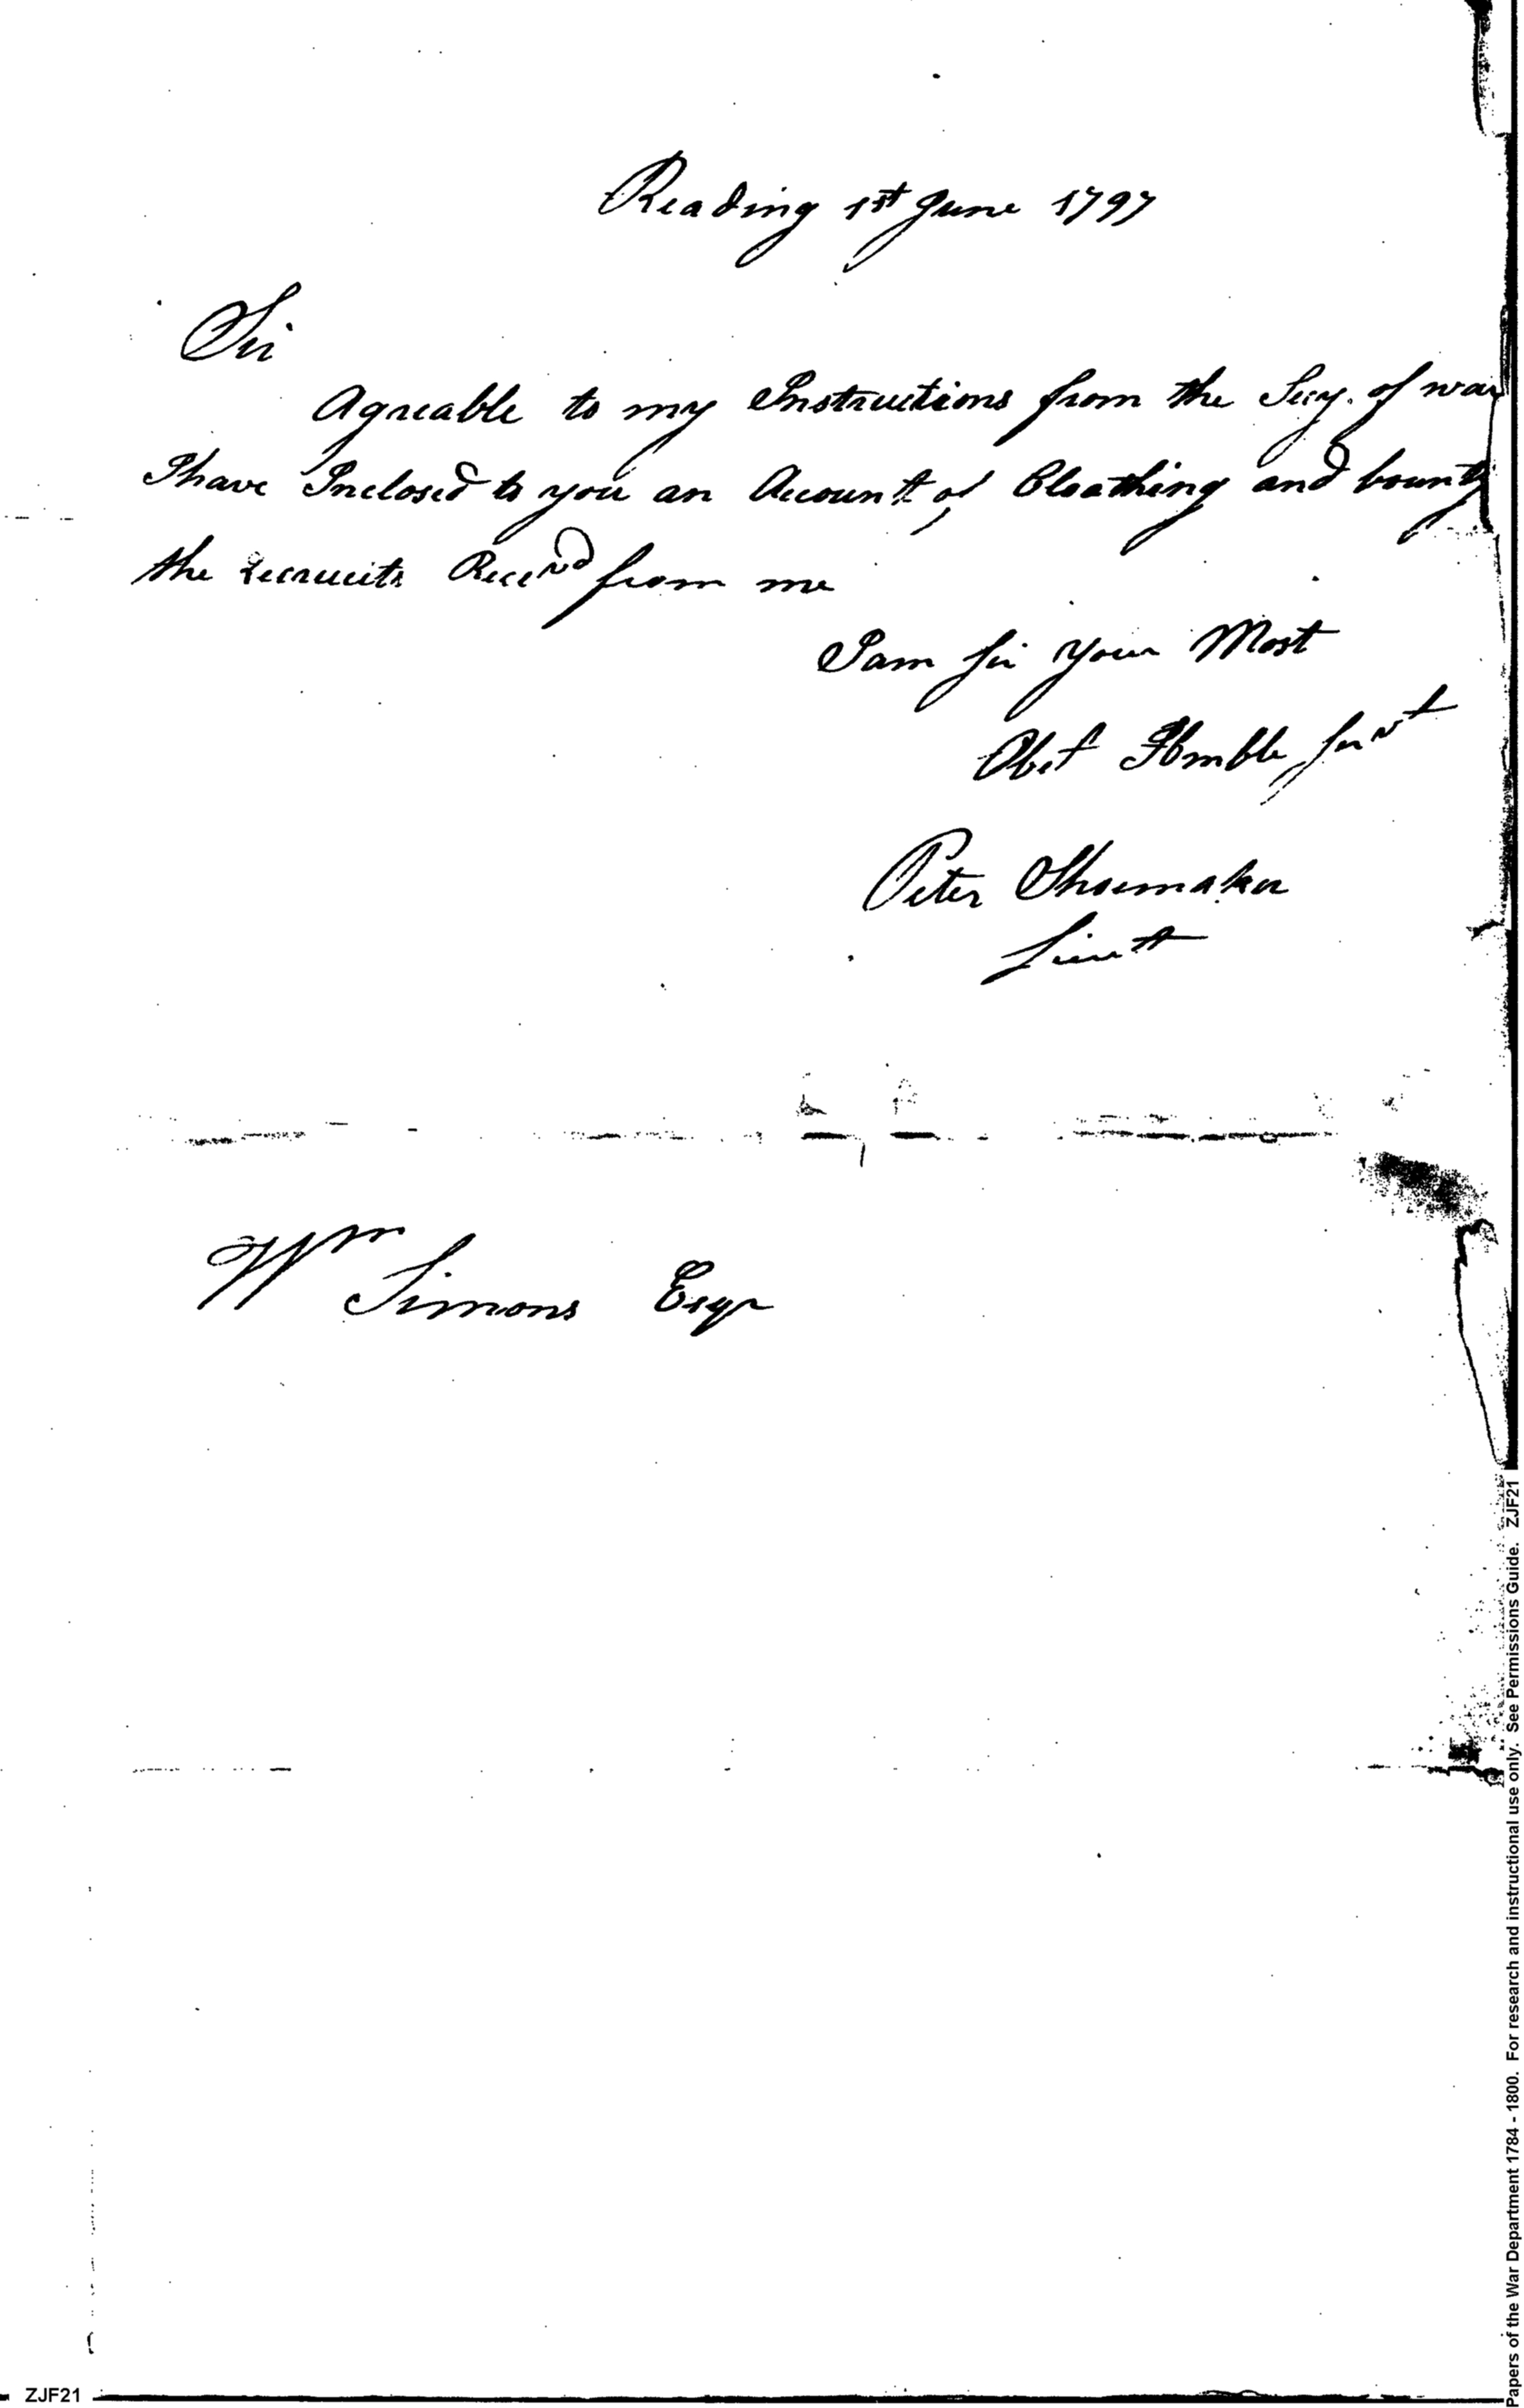 Reading 1st June 1797
Sir
Agreable to my Instructions from the Secy. of war
I have Inclosed to you an Acount of Cloathing and bounty
the recruits Receivd from me
I am Sir your Most
Obet Hmble Servt
Peter Shoemaker
Lieutt
Wm Simons Esqr
Papers of the War Department 1784 - 1800. For research and instructional use only. See Permissions Guide. ZJF21
ZJF21